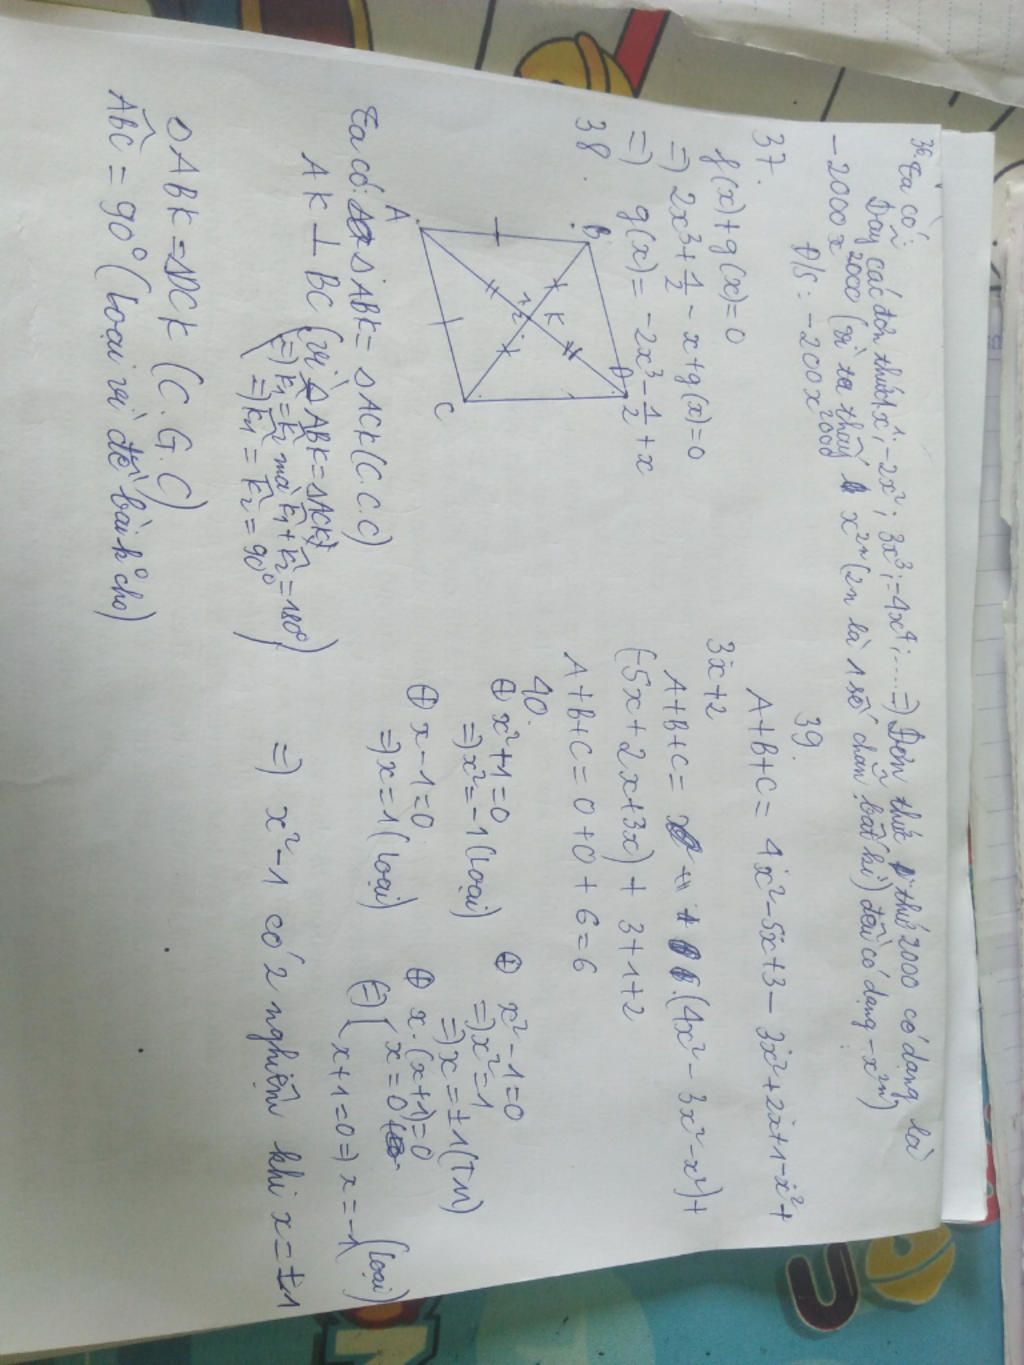 36. Ta có:
Dãy các đơn thức 1x¹; -2x²; 3x³; -4x⁴; .... => Đơn thức thứ 2000 có dạng là
-2000x²⁰⁰⁰ (vì ta thấy x²ⁿ (2n là 1 số chẵn bất kì) đều có dạng -x²ⁿ)
Đ/S: -2000x²⁰⁰⁰
37.
f(x)+g(x)=0
=) 2x³+1/2 - x+g(x)=0
=) g(x)= -2x³- 1/2 +x
38.
A
B
C
D
K
1
2
Ta có: ΔABK= ΔACK(C.C.C)
AK ⊥ BC (vì ΔABK=ΔACK)
=) K̂₁=K̂₂ mà K̂₁+K̂₂=180°
=) K̂₁=K̂₂=90°)
ΔABK=ΔDCK (C.G.C)
ÂBC = 90° (Loại vì đề bài k° cho)
39.
A+B+C= 4x²-5x+3- 3x²+2x+1-x²+
3x+2
A+B+C= (4x²- 3x²-x²)+
(-5x+2x+3x)+ 3+1+2
A+B+C=0+0+6=6
40.
⊕ x²+1=0
=)x²=-1(Loại)
⊕ x-1=0
=)x=1(Loại)
⊕ x²-1=0
=)x²=1
=)x=±1(TM)
⊕ x.(x+1)=0
(=) { x=0
x+1=0=) x=-1 (Loại)
=) x²-1 có 2 nghiệm khi x=±1